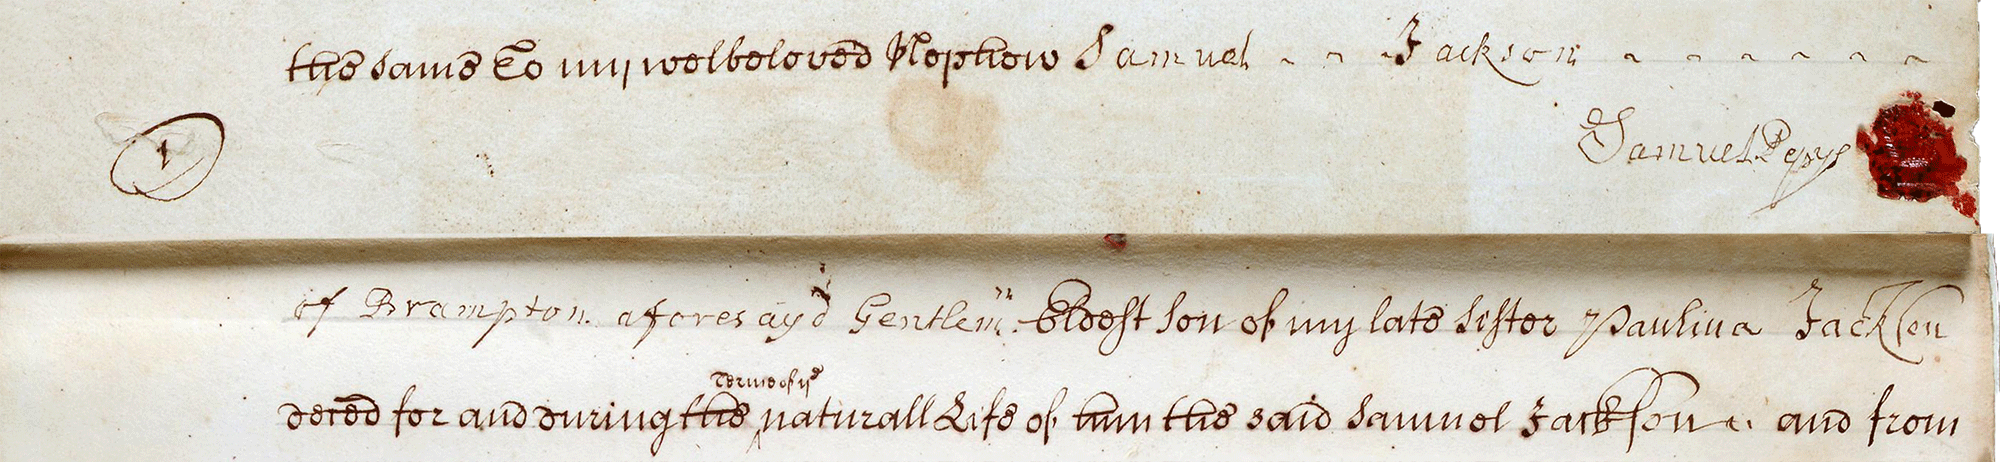 the same To my welbeloved Nephew Samuel - - Jackson - - - - - -
1
Samuel Pepys
of Brampton aforesayd Gentlemn. Eldest son of my late Sister Paulina Jackson
Terme of ye
deced for and during the naturall Life of him the said Samuel Jackson. and from